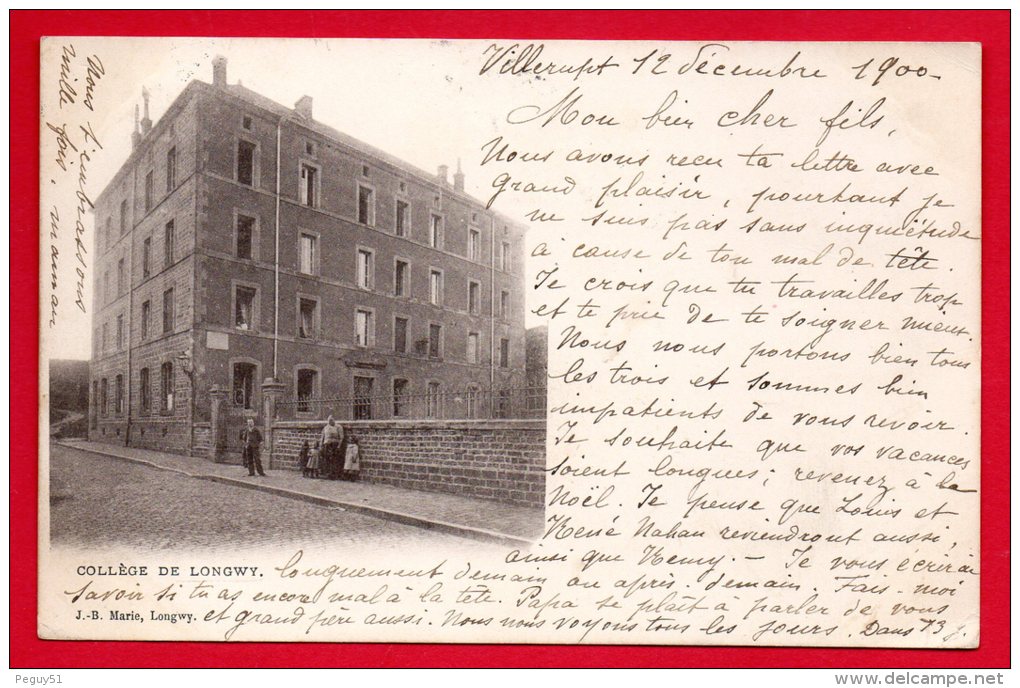 Villerupt 12 décembre 1900
Mon bien cher fils,
Nous avons reçu ta lettre avec
grand plaisir, pourtant je
ne suis pas sans inquiétude
à cause de ton mal de tête.
Je crois que tu travailles trop
et te prie de te soigner mieux.
Nous nous portons bien tous
les trois et sommes bien
impatients de vous revoir.
Je souhaite que vos vacances
soient longues; revenez à la
Noël. Je pense que Louis et
René Nahan reviendront aussi,
ainsi que Remy. — Je vous écrirai
longuement demain ou après-demain. Fais-moi
savoir si tu as encore mal à la tête. Papa se plaît à parler de vous
et grand père aussi. Nous nous voyons tous les jours. Dans 13 j.
Nous t'embrassons
mille fois, maman
COLLÈGE DE LONGWY.
J.-B. Marie, Longwy.
Peguy51
www.delcampe.net